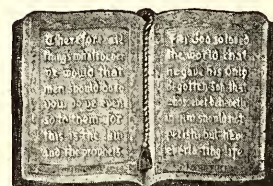 Therefore all
things whatsoever
ye would that
men should do to
you do ye even
so to them: for
this is the law
and the prophets
For God so loved
the world that
he gave his only
begotten Son that
in him should not
perish but have
everlasting life